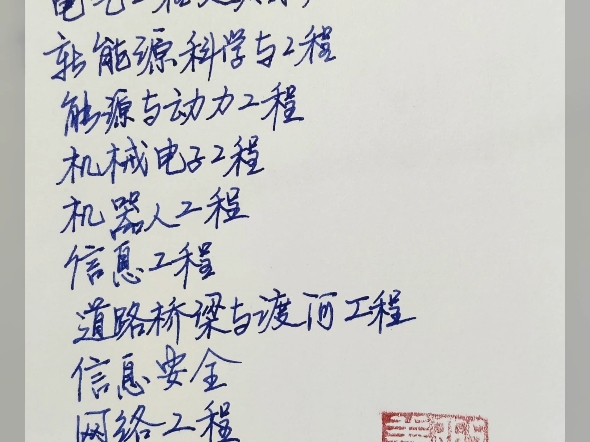 电气工程及其自动
新能源科学与工程
能源与动力工程
机械电子工程
机器人工程
信息工程
道路桥梁与渡河工程
信息安全
网络工程